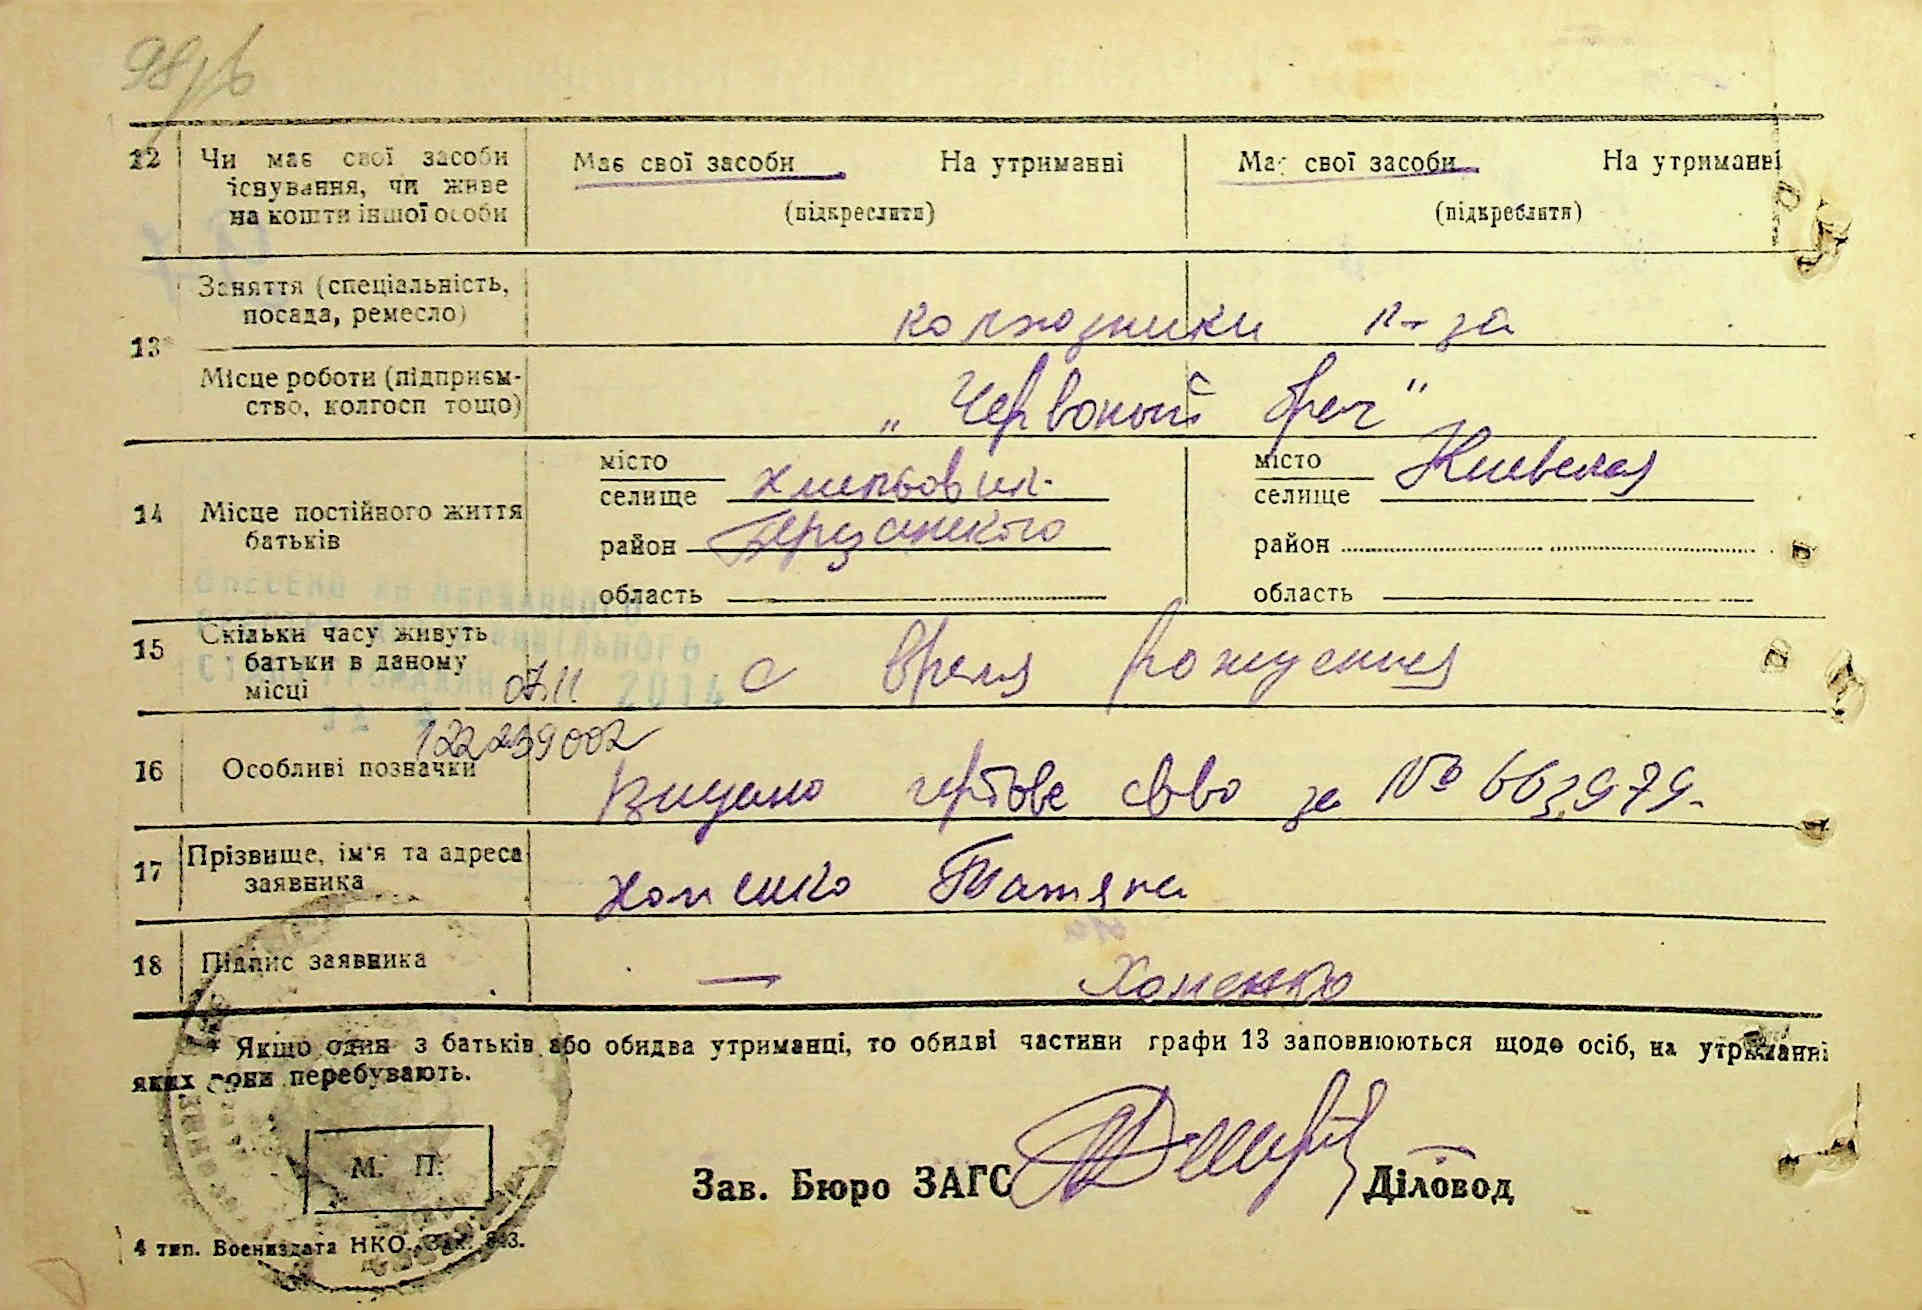 12 Чи має свої засоби Має свої засоби На утриманні Має свої засоби На утриманні
існування, чи живе
на кошти іншої особи (підкреслити) (підкреблити)
Заняття (спеціальність,
посада, ремесло) колхозники к-за
13*
Місце роботи (підприєм-
ство, колгосп тощо) „Червоный
місто місто Киевская
селище селище
14 Місце постійного життя
батьків район Березанского район
область область
15 Скільки часу живуть
батьки в даному
місці 07.11 2014 с время рождения
122239002
16 Особливі позначки Видано гербове св-во за № 663979.
17 Прізвище, ім'я та адреса
заявника Хоменко Татяна
18 Підпис заявника — Хоменко
* Якщо один з батьків або обидва утриманці, то обидві частини графи 13 заповнюються щодо осіб, на утриманні
яких вони перебувають.
М. П.
Зав. Бюро ЗАГС Діловод
4 тип. Воениздата НКО. Зак.